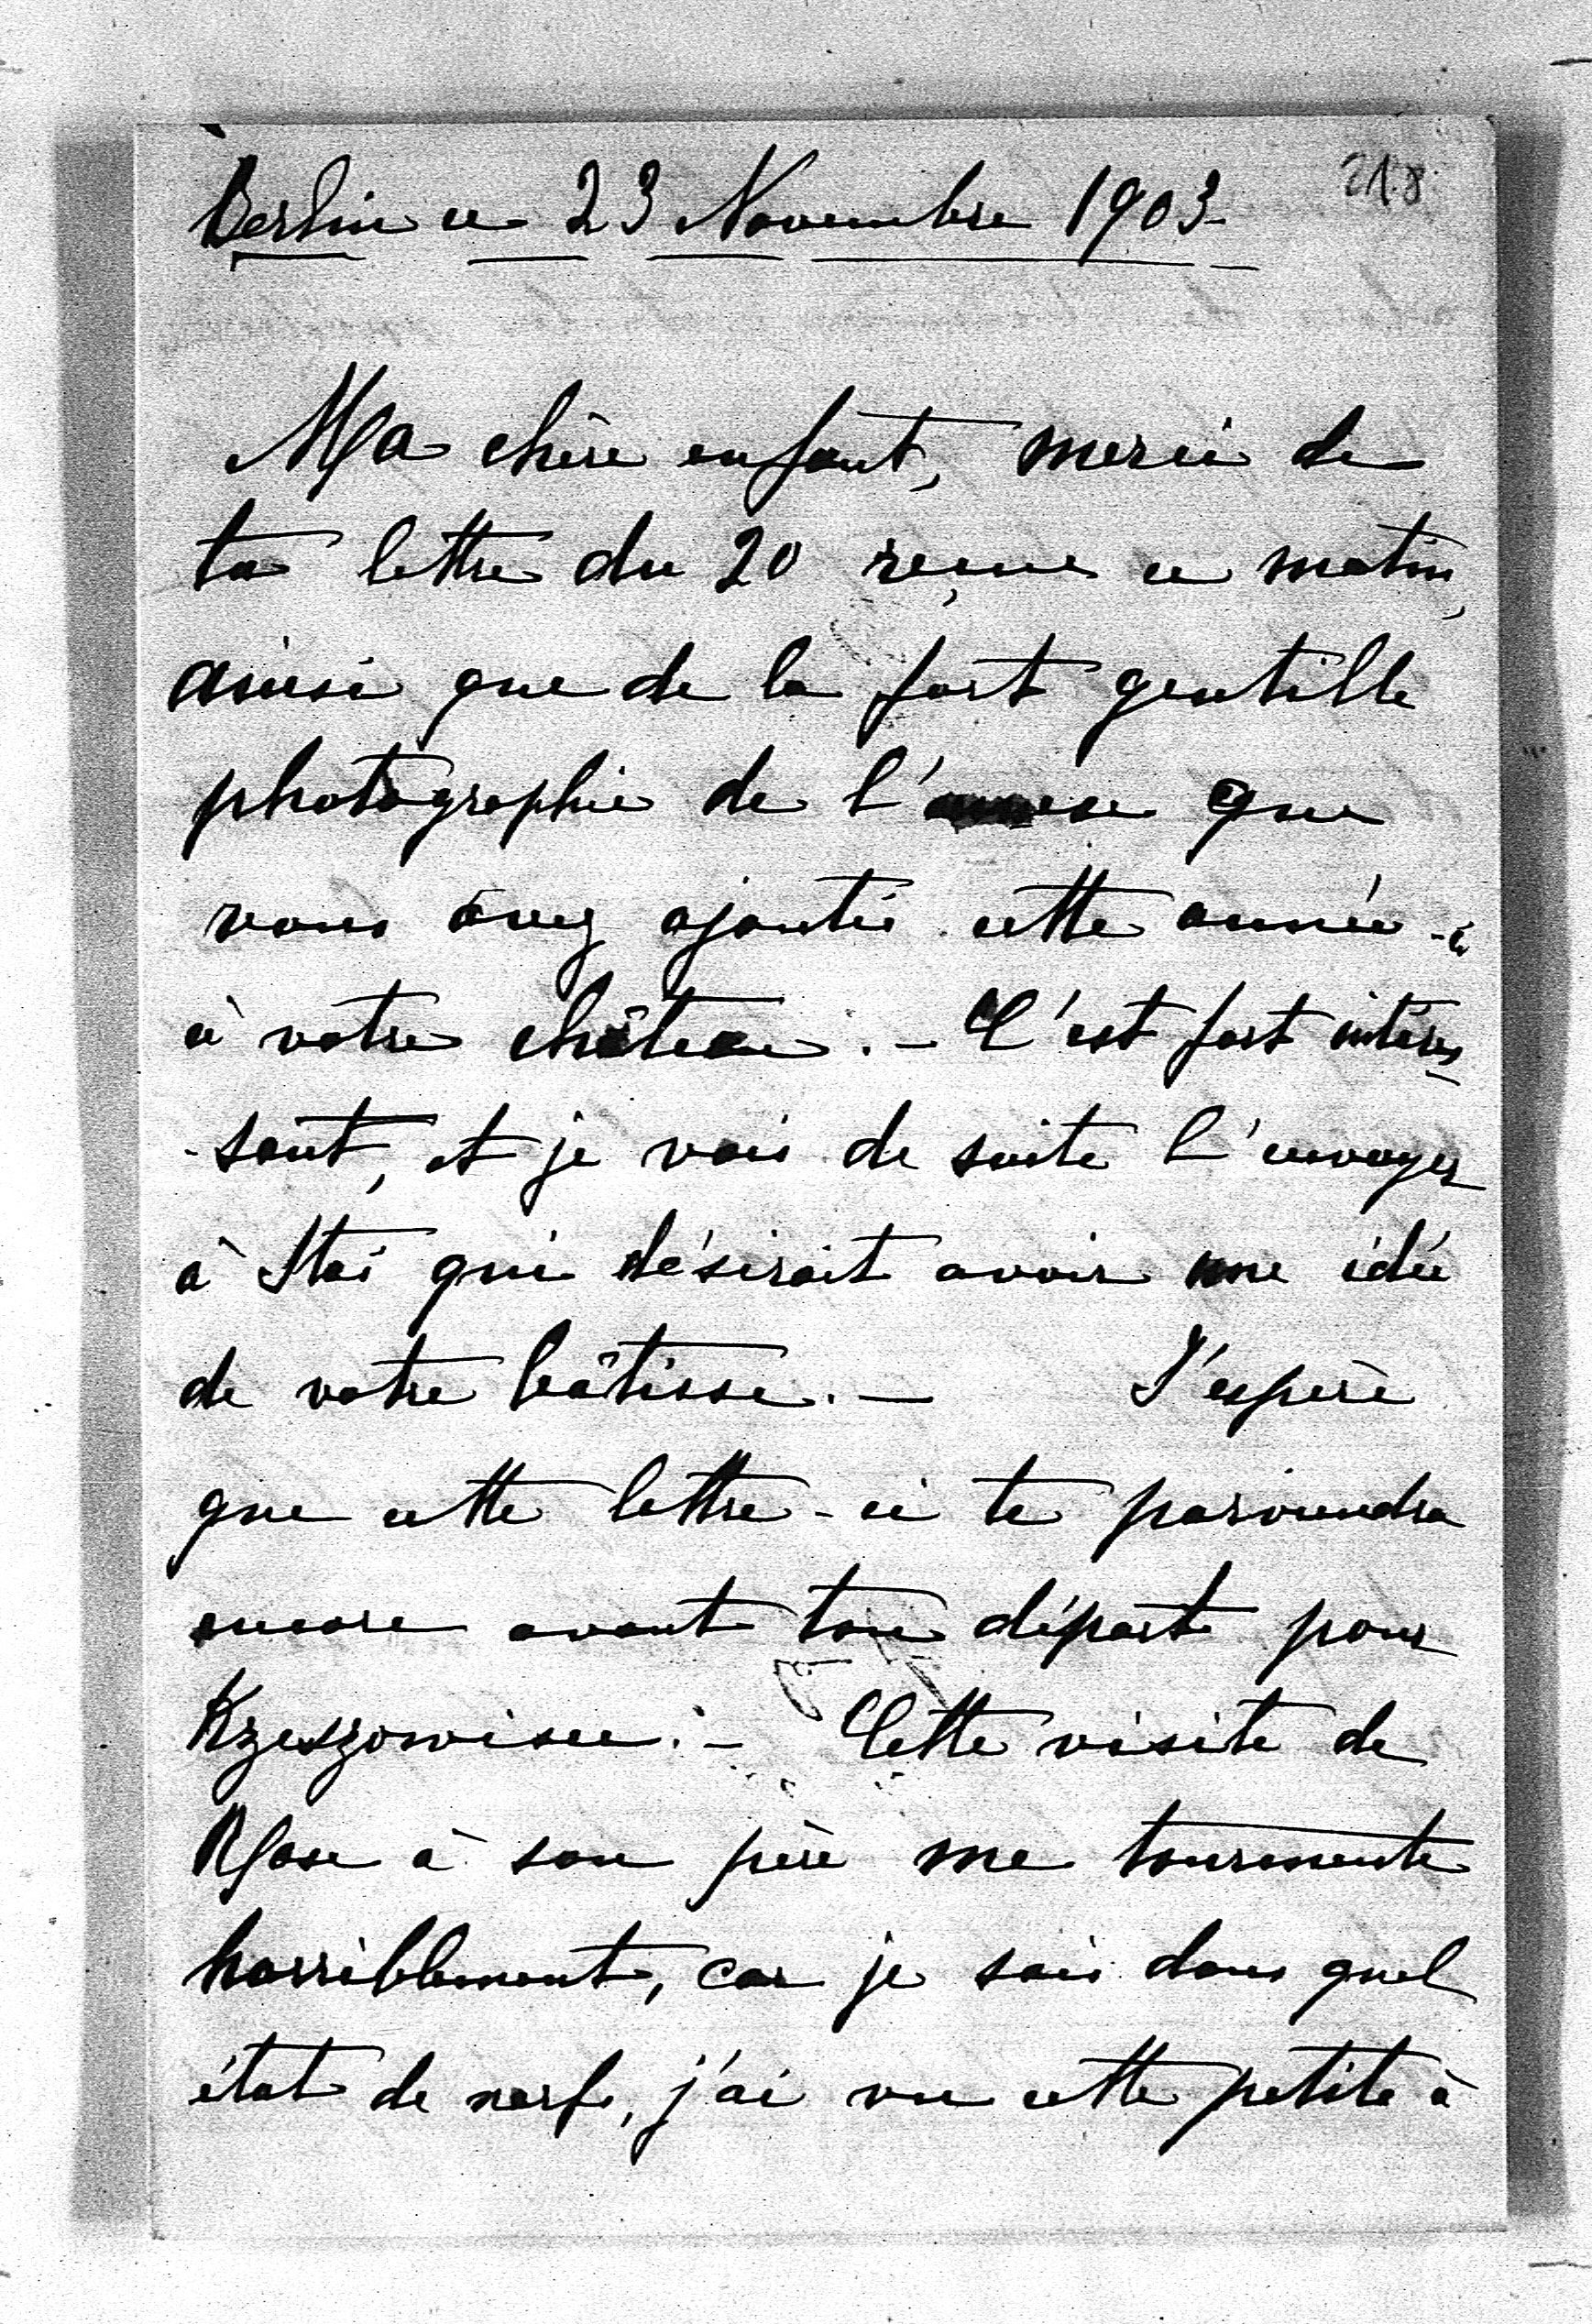 Berlin ce 23 Novembre 1903-
218.
Ma chère enfant, merci de
ta lettre du 20 reçue ce matin,
ainsi que de la fort gentille
photographie de l'annexe que
vous avez ajoutée cette année -
à votre château. - C'est fort intéres
- sant, et je vais de suite l'envoyer
à Stas qui désirait avoir une idée
de votre bâtisse. - J'espère
que cette lettre-ci te parviendra
encore avant ton départ pour
Krzeszowisce. - Cette visite de
Rose à son père me tourmente
horriblement, car je sais dans quel
état de nerfs, j'ai vu cette petite à